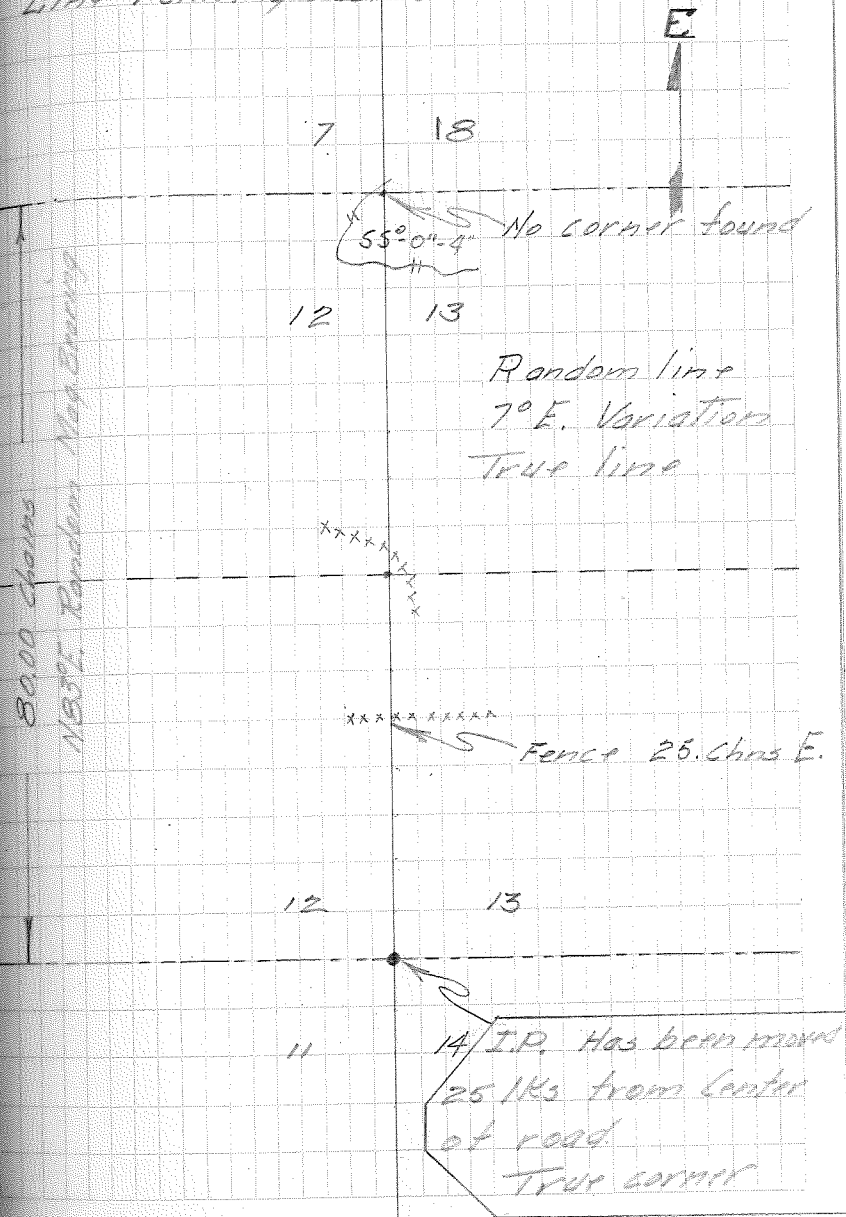 Line
E
7 18
No corner found
55°-0"-4"
12 13
Random line
7° E. Variation
True line
80.00 Chains
N83°E Random Mag. Bearing
Fence 25. Chns E.
12 13
11 14
I.P. Has been moved
25 lks from Center
of road.
True corner